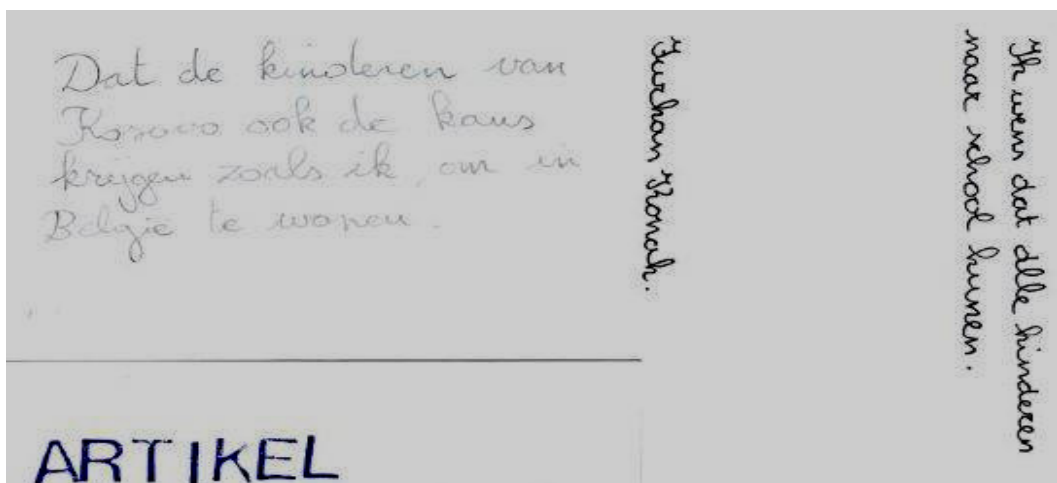 Dat de kinderen van
Kosovo ook de kans
krijgen zoals ik, om in
België te wonen.
ARTIKEL
Ik wens dat alle kinderen
naar school kunen.
Furkan Konak.